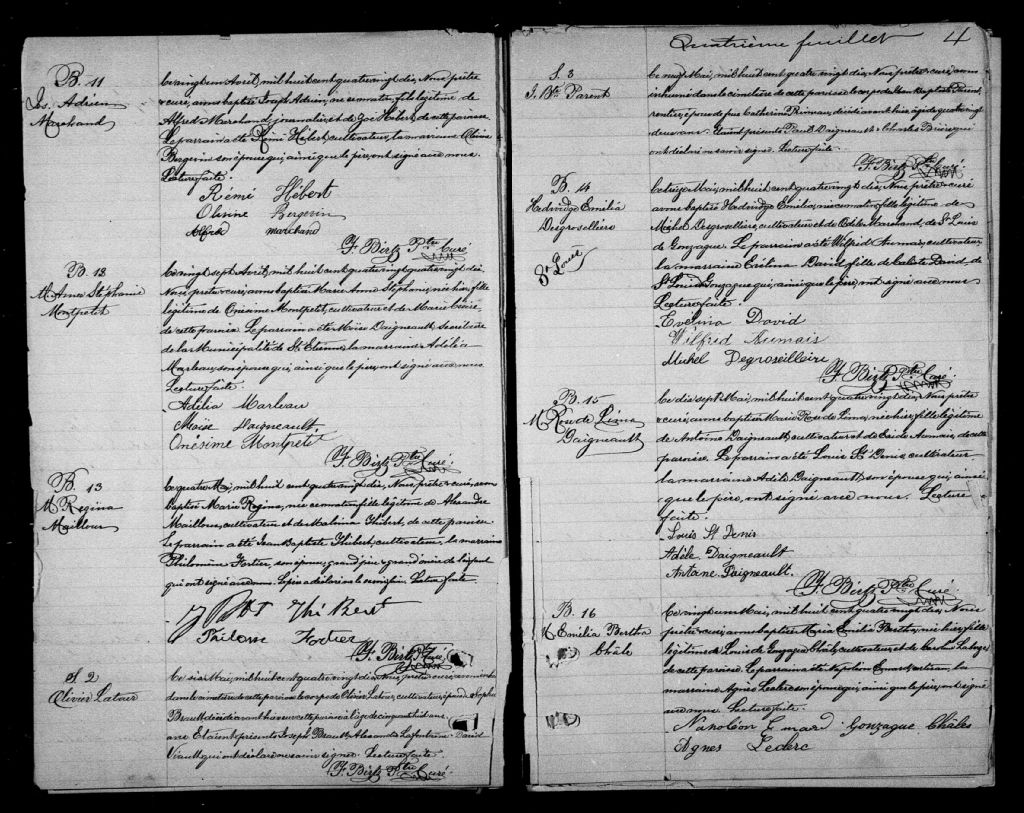 B. 11
Jos. Adrien
Marchand
Ce vingt un Avril, mil huit cent quatre vingt dix, Nous prêtre
curé, avons baptisé Joseph Adrien, né ce matin, fils légitime de
Alfred Marchand, journalier et de Zoé Hébert, de cette paroisse.
Le parrain a été Rémi Hébert, cultivateur, la marraine Olivine
Bergevin son épouse qui, ainsi que le père, ont signé avec nous.
Lecture faite.
Rémi Hébert
Olivine Bergevin
Alfred marchand
F. Birtz Ptre Curé
B. 12
M. Anna Stéphanie
Montpetit
Ce vingt sept Avril, mil huit cent quatre vingt quatre vingt dix.
Nous prêtre curé, avons baptisé Marie Anne Stéphanie, née hier, fille
légitime de Onésime Montpetit, cultivateur et de Marie
de cette paroisse. Le parrain a été Moïse Daigneault, Secrétaire
de la Municipalité de St. Etienne, la marraine Adélia
Marleau, son épouse qui, ainsi que le père, ont signé avec nous
Lecture faite.
Adélia Marleau
Moïse Daigneault
Onésime Montpetit
F. Birtz Ptre Curé
B. 13
M. Regina
Mailloux
Ce quatre Mai, mil huit cent quatre vingt dix, Nous prêtre curé, avons
baptisé Marie Regina, née ce matin, fille légitime de Alexandre
Mailloux, cultivateur et de Malvina Thibert, de cette paroisse
Le parrain a été Jean Baptiste Thibert, cultivateur, la marraine
Philomène Fortier, son épouse, grand père et grand mère de l'enfant
qui ont signé avec nous. Le père a déclaré ne savoir signer. Lecture faite
Thi Bert
Philomène Fortier
F. Birtz Ptre Curé
S. 2
Olivier Latour
Ce six Mai, mil huit cent quatre vingt dix, Nous, prêtre curé, avons inhumé
dans le cimetière de cette paroisse le corps de Olivier Latour, cultivateur, époux de Sophie
Brault décédé avant hier sur cette paroisse à l'âge de cinquante huit ans.
Etaient présents Joseph Brault, Alexandre Lafontaine, David
Viault qui ont déclaré ne savoir signer. Lecture faite
F. Birtz Ptre Curé
Quatrième feuillet 4
S. 3
J. Bte Parent
Ce neuf Mai, mil huit cent quatre vingt dix, Nous prêtre curé, avons
inhumé dans le cimetière de cette paroisse le corps de Jean Baptiste Parent,
rentier, époux de feue Catherine Primeau, décédé avant hier, âgé de quatre vingt
deux ans. Etaient présents Paul Daigneault & Charles qui
ont déclaré ne savoir signer. Lecture faite.
F. Birtz Ptre Curé
B. 14
Hedwidge Emilia
Desgroselliers
St Louis
Ce treize Mai, mil huit cent quatre vingt dix, Nous prêtre curé
avons baptisé Hedwidge Emilia, née ce matin, fille légitime de
Michel Desgroselliers, cultivateur et de Odile Marchand, de St Louis
de Gonzague. Le parrain a été Wilfred Aumais, cultivateur,
la marraine Evélina David fille de Calixte David, de
St Louis de Gonzague qui, ainsi que le père, ont signé avec nous
Lecture faite.
Evelina David
Wilfred Aumais
Michel Degroseilleire
F. Birtz Ptre Curé
B. 15
M. Rose de Lima
Daigneault
Ce dix sept Mai, mil huit cent quatre vingt dix, Nous prêtre
curé, avons baptisé Marie Rose de Lima, née hier, fille légitime
de Antoine Daigneault, cultivateur et de Aumais, de cette
paroisse. Le parrain a été Louis St Denis, cultivateur
la marraine Adèle Daigneault son épouse qui, ainsi
que le père, ont signé avec nous. Lecture
faite.
Louis St Denis
Adèle Daigneault
Antoine Daigneault.
F. Birtz Ptre Curé
B. 16
M. Emilia Bertha
Châle
Ce vingt un Mai, mil huit cent quatre vingt dix, Nous
prêtre curé, avons baptisé Marie Emilia Bertha, née hier, fille
légitime de Louis de Gonzague Châle, cultivateur et de Caroline Laberge
de cette paroisse. Le parrain a été Napoléon Emard, artisan, la
marraine Agnès Leclerc son épouse qui, ainsi que le père, ont signé
avec nous. Lecture faite.
Napoléon Emard Gonzague Châles
Agnes Leclerc